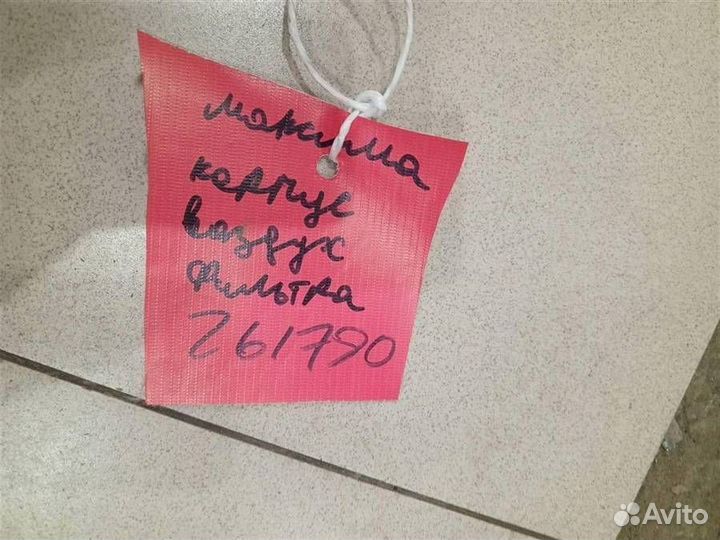 максима
корпус
воздух
фильтра
261790
Avito